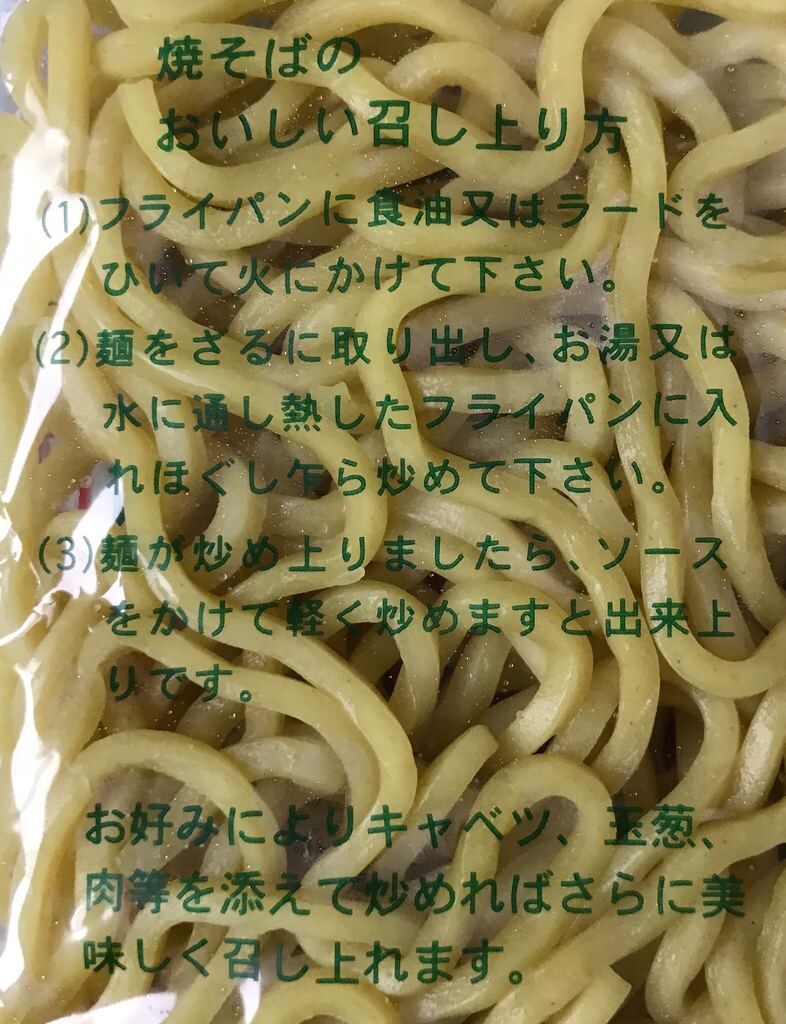 焼そばの
おいしい召し上り方
(1)フライパンに食油又はラードを
ひいて火にかけて下さい。
(2)麺をざるに取り出し、お湯又は
水に通し熱したフライパンに入
れほぐし乍ら炒めて下さい。
(3)麺が炒め上りましたら、ソース
をかけて軽く炒めますと出来上
りです。
お好みによりキャベツ、玉葱、
肉等を添えて炒めればさらに美
味しく召し上れます。